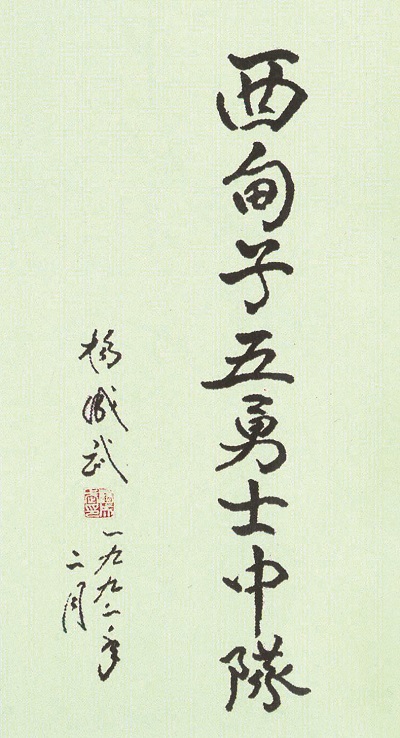 西甸子五勇士中隊
楊成武
一九九二年
二月